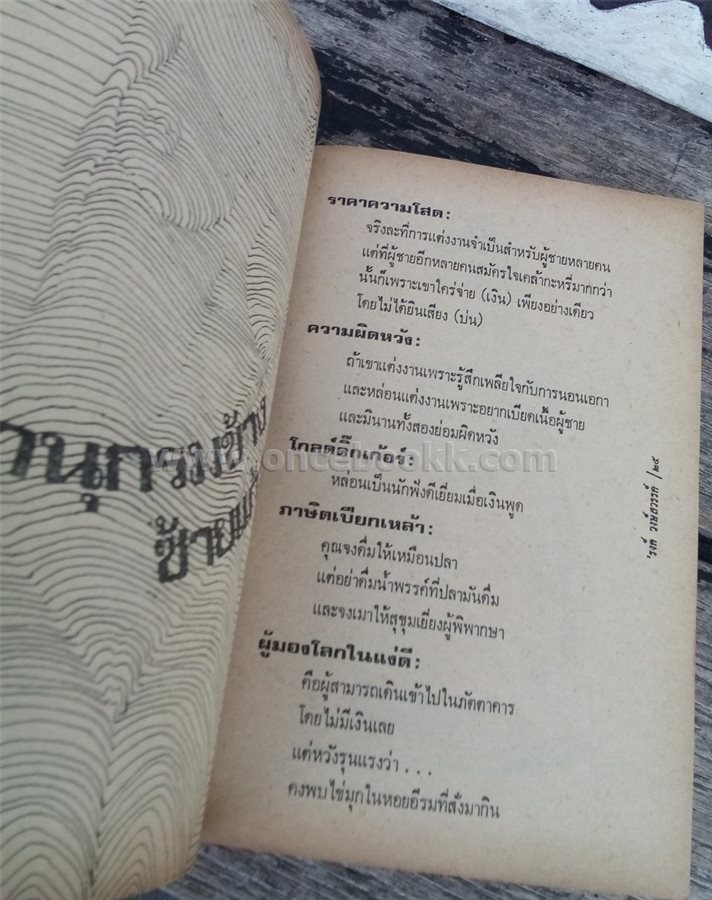 านุกรมข้าง
ซ้าย
ราคาความโสด:
จริงละที่การแต่งงานจำเป็นสำหรับผู้ชายหลายคน
แต่ที่ผู้ชายอีกหลายคนสมัครใจเคล้ากะหรี่มากกว่า
นั้นก็เพราะเขาใคร่จ่าย (เงิน) เพียงอย่างเดียว
โดยไม่ได้ยินเสียง (บ่น)
ความผิดหวัง:
ถ้าเขาแต่งงานเพราะรู้สึกเพลียใจกับการนอนเอกา
และหล่อนแต่งงานเพราะอยากเบียดเนื้อผู้ชาย
และมินานทั้งสองย่อมผิดหวัง
โกลด์ดิ๊กเก้อร์:
หล่อนเป็นนักฟังดีเยี่ยมเมื่อเงินพูด
ภาษิตเปียกเหล้า:
คุณจงดื่มให้เหมือนปลา
แต่อย่าดื่มน้ำพรรค์ที่ปลามันดื่ม
และจงเมาให้สุขุมเยี่ยงผู้พิพากษา
ผู้มองโลกในแง่ดี:
คือผู้สามารถเดินเข้าไปในภัตตาคาร
โดยไม่มีเงินเลย
แต่หวังรุนแรงว่า . . .
คงพบไข่มุกในหอยอีรมที่สั่งมากิน
'รงค์ วงษ์สวรรค์ / ๒๕
www.oncebookk.com